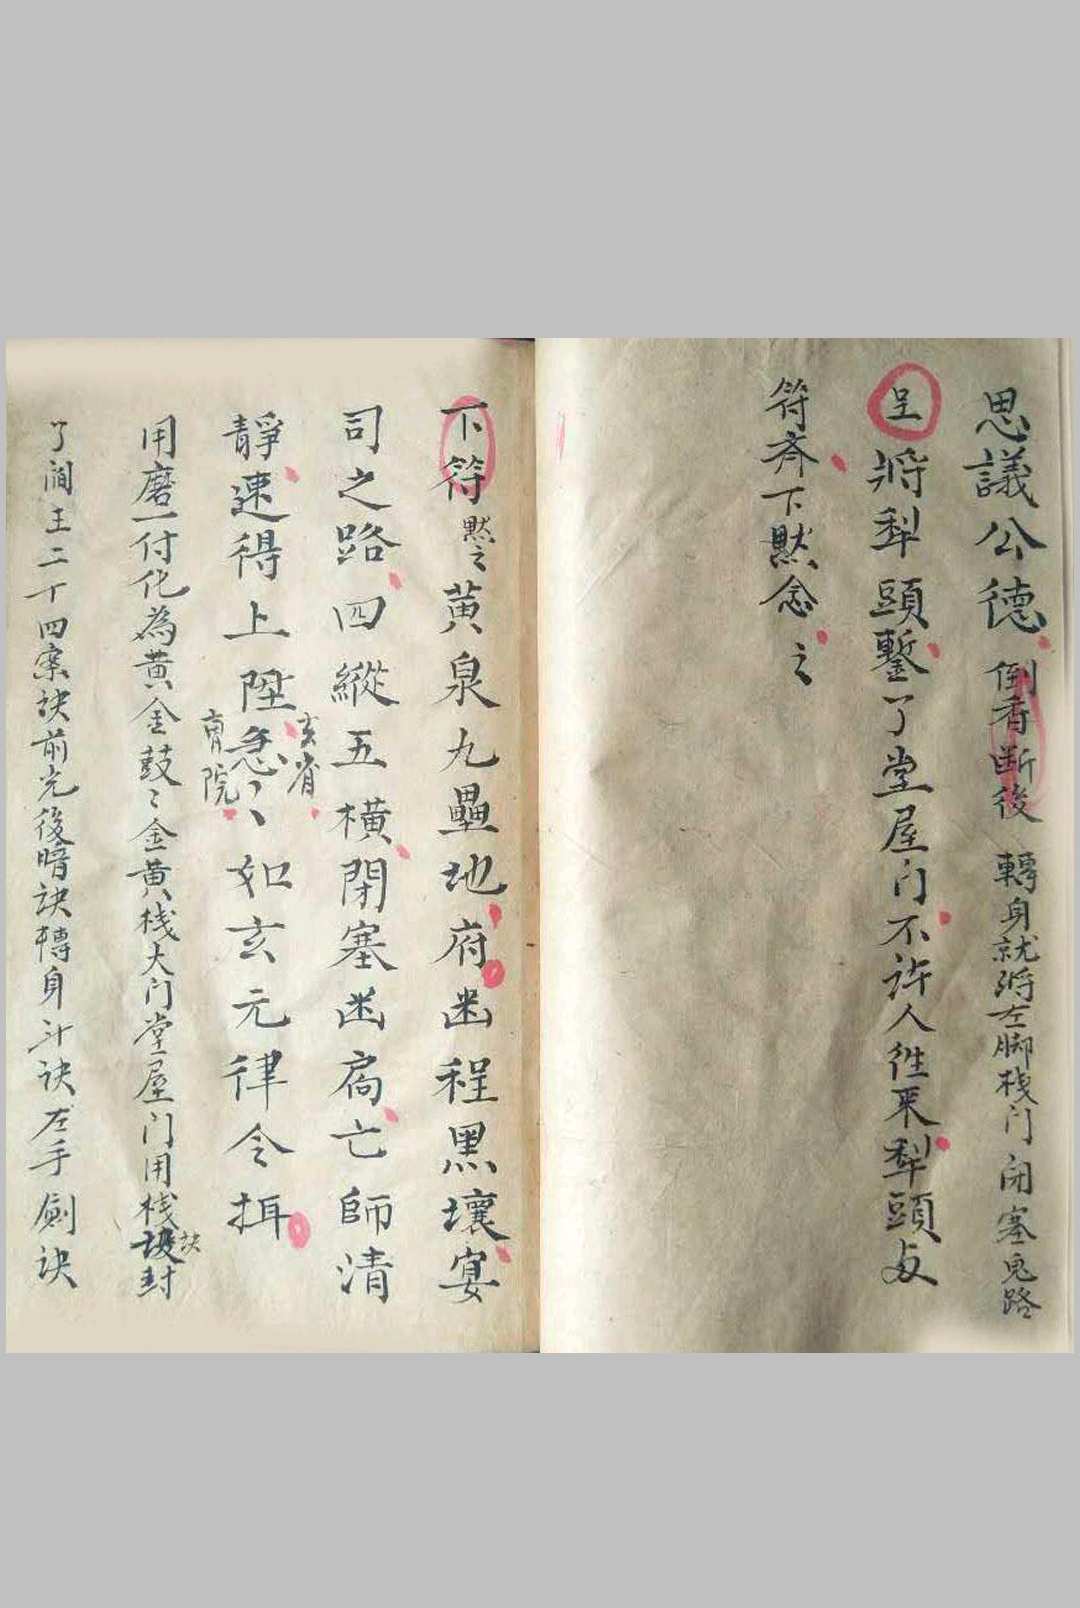 思議公德倒香断後轉身就將左脚栈门闭塞鬼路
呈將犁頭鏨了堂屋门不許人徃来犁頭与
符斉下默念之
下符默之黄泉九壘地府幽程黑壤冥
司之路四縱五横閉塞幽扃亡師清
靜速得上陞急〻如玄元律令
玄省
院
用磨一付化為黄金鼓〻金黄栈大门堂屋门用栈封
訣
了阎王二十四案訣前光後暗訣轉身斗訣左手劍訣